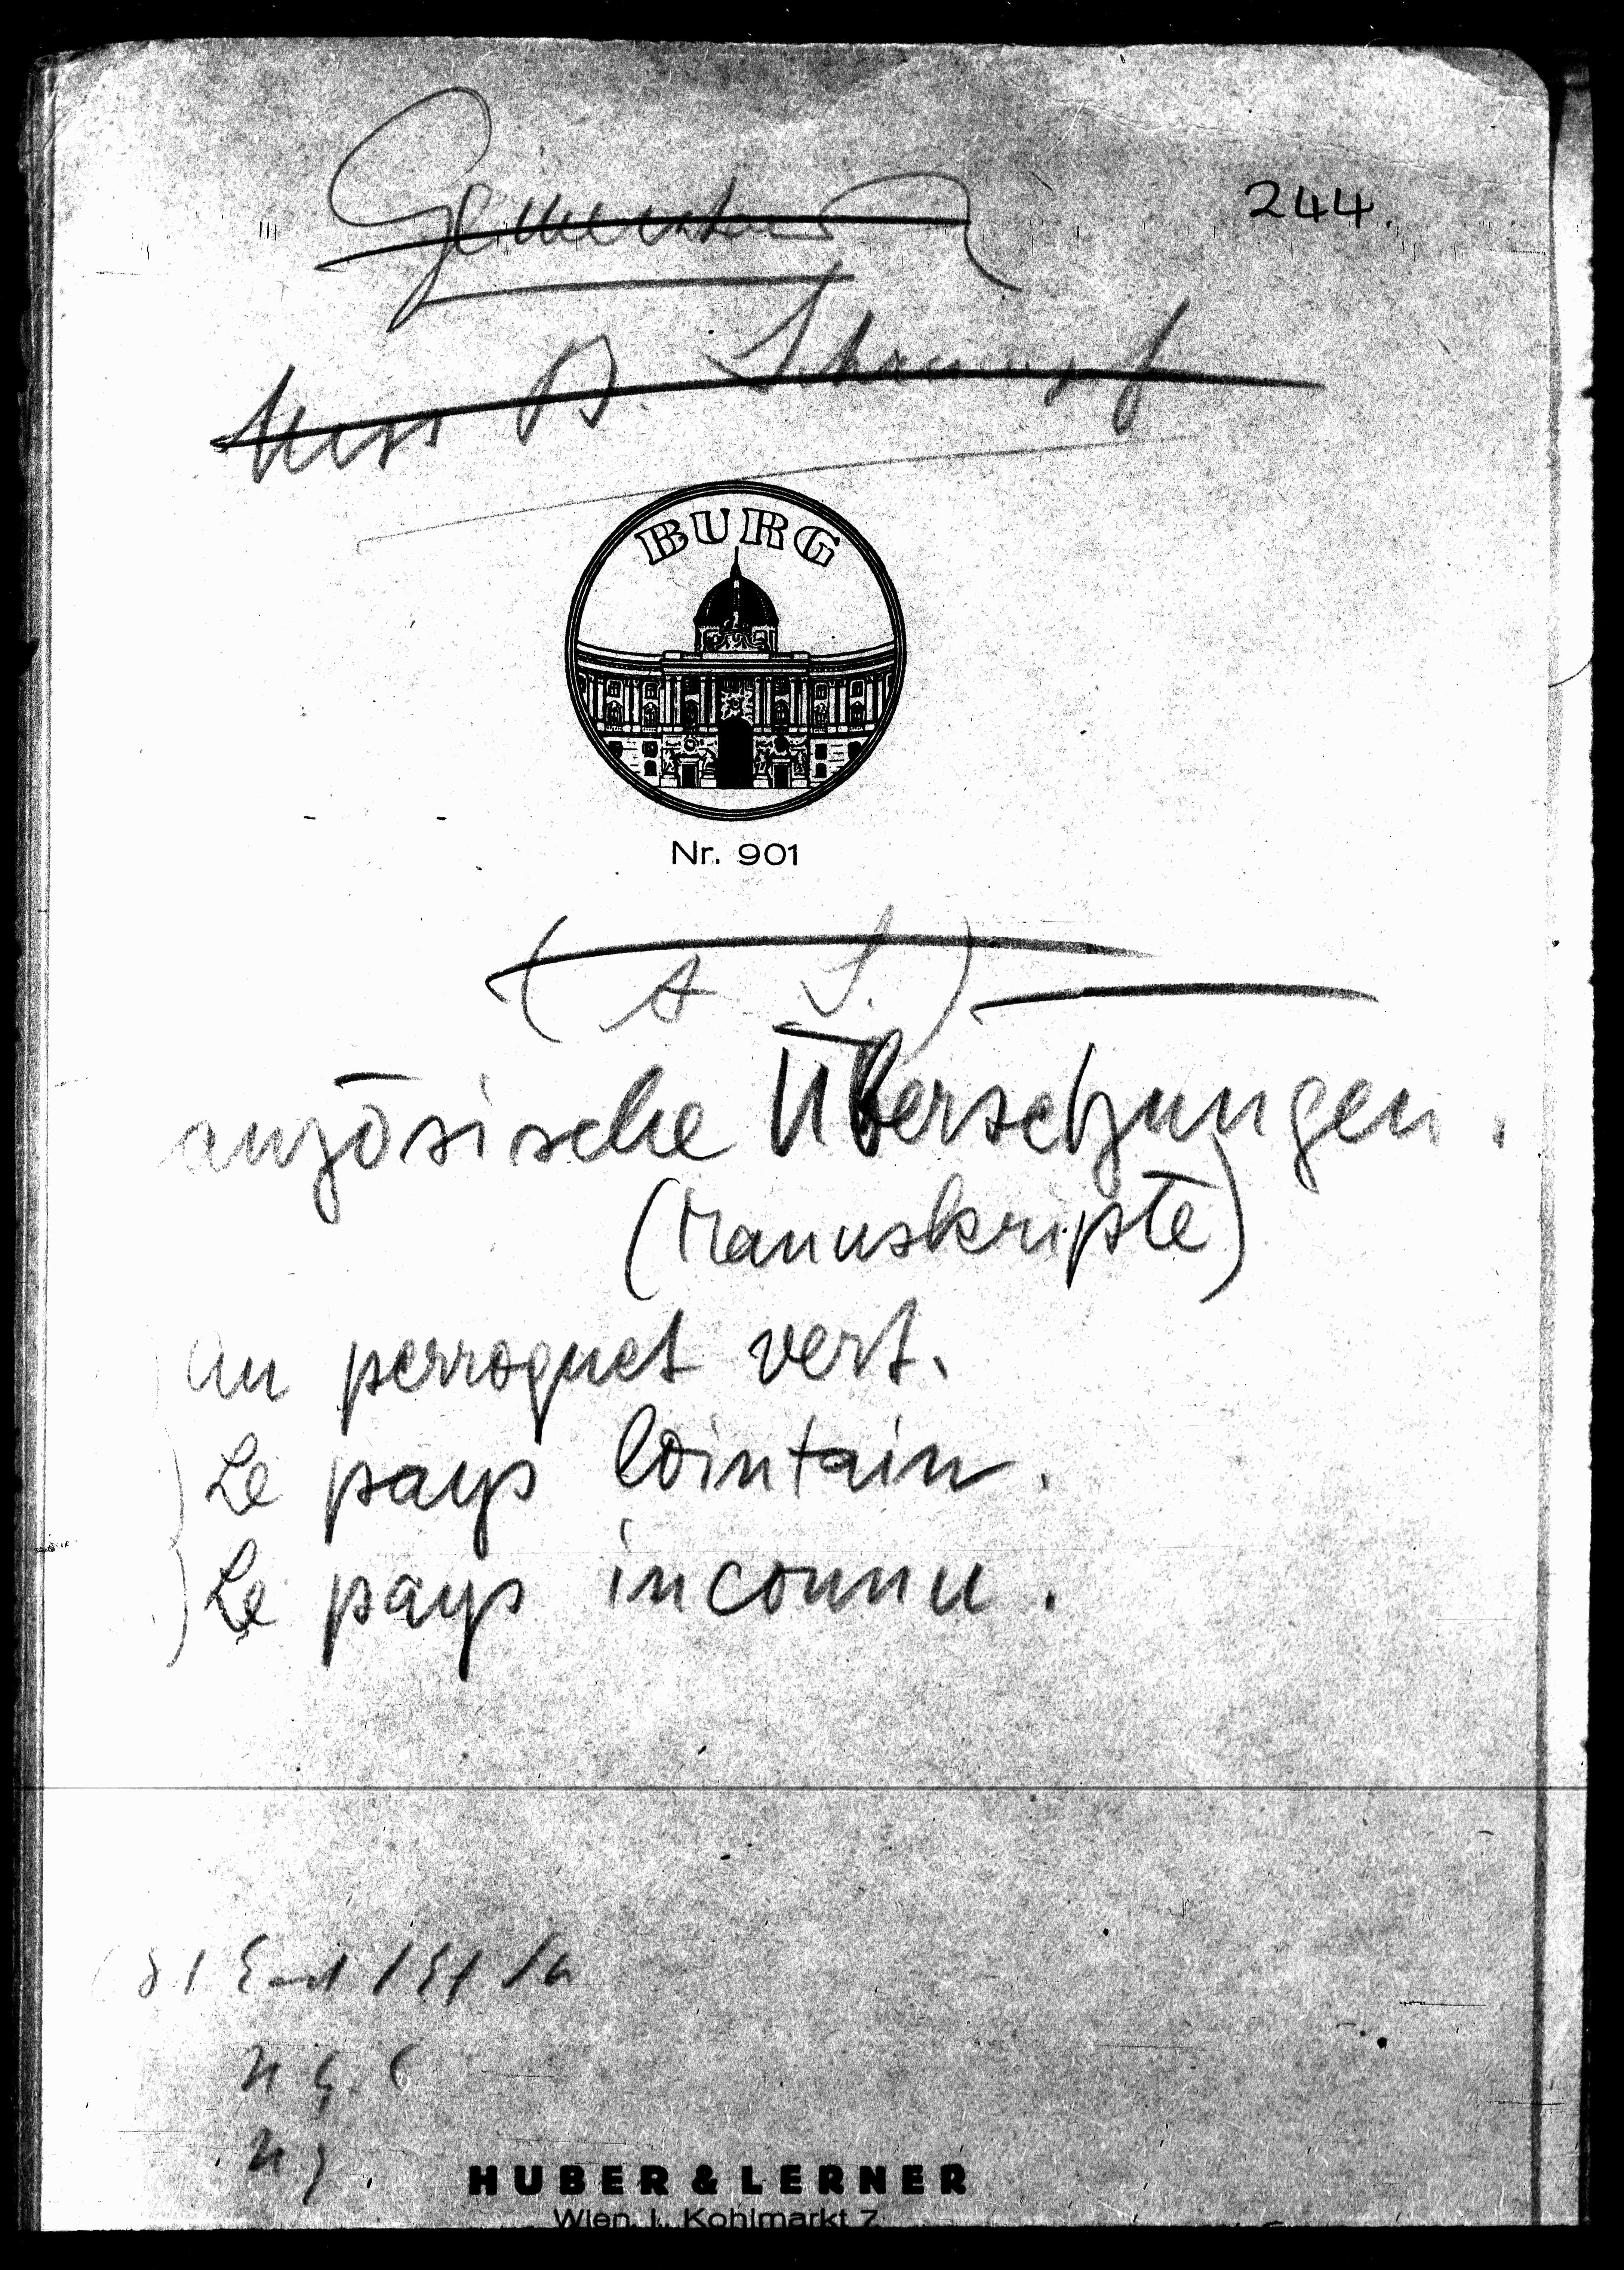 244.
Miss B. Schrumpf
BURG
Nr. 901
(A S.)
anzösische Übersetzungen.
(Manuskripte)
Un perroquet vert.
Le pays lointain.
Le pays inconnu.
HUBER & LERNER
Wien, I., Kohlmarkt 7